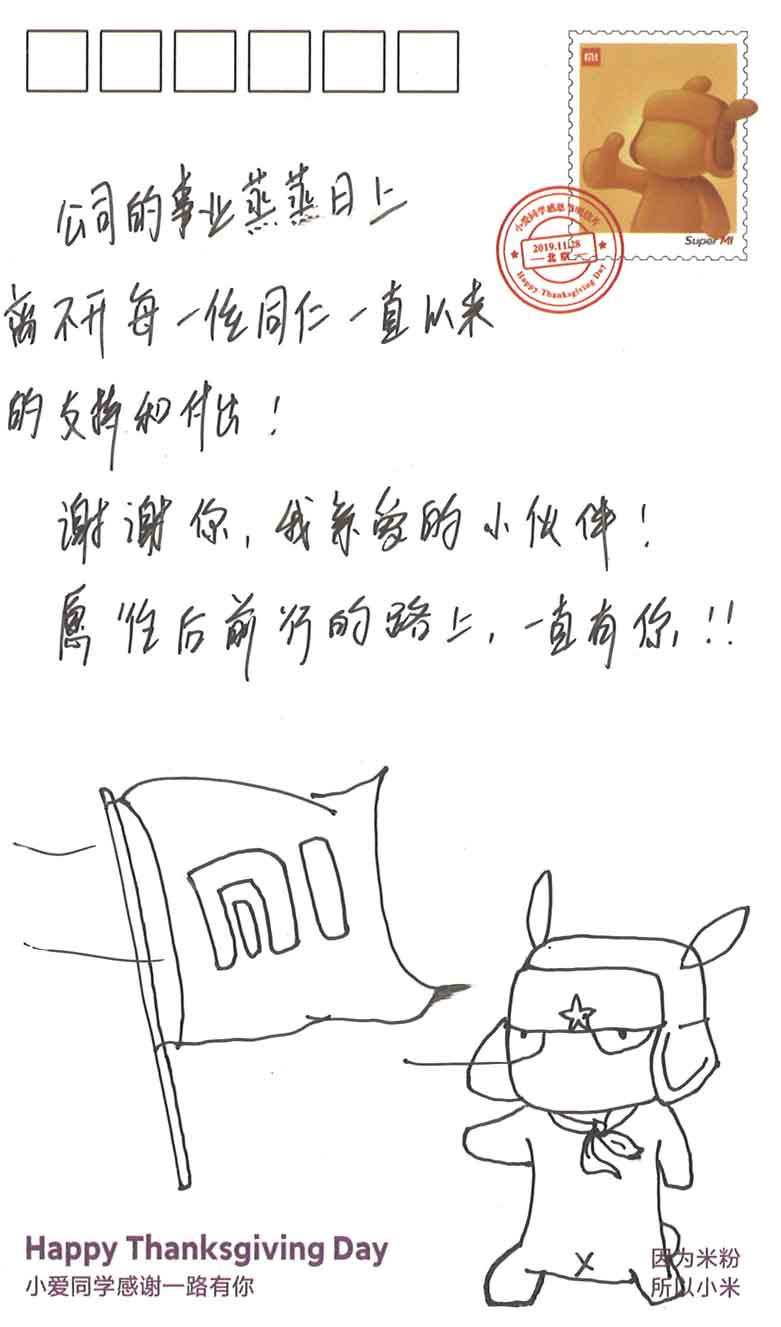 MI
Super MI
小爱同学感恩节明信片
2019.11.28
北京
Happy Thanksgiving Day
公司的事业蒸蒸日上
离不开每一位同仁一直以来
的支持和付出！
谢谢你，我亲爱的小伙伴！
愿往后前行的路上，一直有你！！
MI
Happy Thanksgiving Day
小爱同学感谢一路有你
因为米粉
所以小米